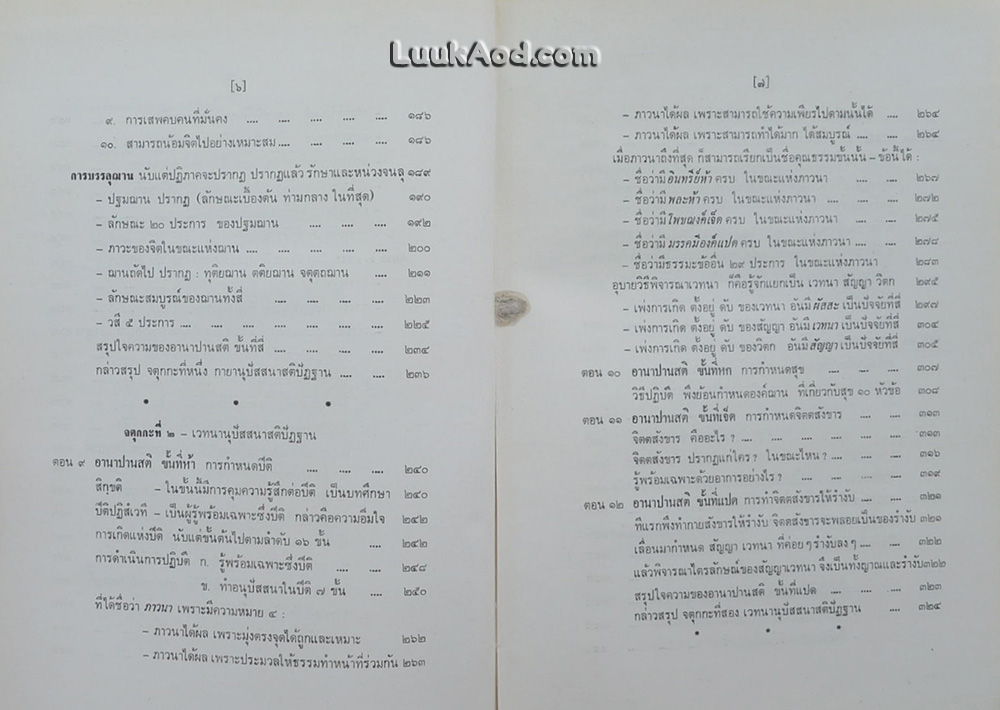 LuukAod.com
[๖]
๙. การเสพคบคนที่มั่นคง .... .... .... .... .... ๑๘๖
๑๐. สามารถน้อมจิตไปอย่างเหมาะสม .... .... .... .... ๑๘๖
การบรรลุฌาน นับแต่ปฏิภาคจะปรากฏ ปรากฏแล้ว รักษาและหน่วงจนลุ ๑๘๙
– ปฐมฌาน ปรากฏ (ลักษณะเบื้องต้น ท่ามกลาง ในที่สุด) ๑๙๐
– ลักษณะ ๒๐ ประการ ของปฐมฌาน .... .... .... ๑๙๒
– ภาวะของจิตในขณะแห่งฌาน .... .... .... .... .... ๒๐๐
– ฌานถัดไป ปรากฏ : ทุติยฌาน ตติยฌาน จตุตถฌาน .... ๒๑๑
– ลักษณะสมบูรณ์ของฌานทั้งสี่ .... .... .... .... ๒๒๓
– วสี ๕ ประการ .... .... .... .... .... .... ๒๒๕
สรุปใจความของอานาปานสติ ขั้นที่สี่ .... .... .... .... ๒๓๔
กล่าวสรุป จตุกกะที่หนึ่ง กายานุปัสสนาสติปัฏฐาน .... .... ๒๓๖
• • •
จตุกกะที่ ๒ – เวทนานุปัสสนาสติปัฏฐาน
ตอน ๙ อานาปานสติ ขั้นที่ห้า การกำหนดปีติ .... .... .... ๒๔๐
สิกฺขติ – ในขั้นนี้มีการคุมความรู้สึกต่อปีติ เป็นบทศึกษา ๒๔๐
ปีติปฏิสํเวที – เป็นผู้รู้พร้อมเฉพาะซึ่งปีติ กล่าวคือความอิ่มใจ ๒๔๒
การเกิดแห่งปีติ นับแต่ขั้นต้นไปตามลำดับ ๑๖ ขั้น .... ๒๔๒
การดำเนินการปฏิบัติ ก. รู้พร้อมเฉพาะซึ่งปีติ .... .... ๒๔๘
ข. ทำอนุปัสสนาในปีติ ๗ ขั้น .... ๒๕๐
ที่ได้ชื่อว่า ภาวนา เพราะมีความหมาย ๔ :
– ภาวนาได้ผล เพราะมุ่งตรงจุดได้ถูกและเหมาะ ๒๖๒
– ภาวนาได้ผล เพราะประมวลให้ธรรมทำหน้าที่ร่วมกัน ๒๖๓
[๗]
– ภาวนาได้ผล เพราะสามารถใช้ความเพียรไปตามนั้นได้ .... ๒๖๔
– ภาวนาได้ผล เพราะสามารถทำได้มาก ได้สมบูรณ์ .... ๒๖๔
เมื่อภาวนาถึงที่สุด ก็สามารถเรียกเป็นชื่อคุณธรรมชั้นนั้น – ข้อนี้ได้ :
– ชื่อว่ามี อินทรีย์ห้า ครบ ในขณะแห่งภาวนา .... ๒๖๗
– ชื่อว่ามี พละห้า ครบ ในขณะแห่งภาวนา .... .... ๒๗๒
– ชื่อว่ามี โพชฌงค์เจ็ด ครบ ในขณะแห่งภาวนา .... ๒๗๕
– ชื่อว่ามี มรรคมีองค์แปด ครบ ในขณะแห่งภาวนา .... ๒๗๘
– ชื่อว่ามีธรรมะข้ออื่น ๒๙ ประการ ในขณะแห่งภาวนา ๒๘๓
อุบายวิธีพิจารณาเวทนา ก็คือรู้จักแยกเป็น เวทนา สัญญา วิตก ๒๙๕
– เพ่งการเกิด ตั้งอยู่ ดับ ของเวทนา อันมี ผัสสะ เป็นปัจจัยที่สี่ ๒๙๗
– เพ่งการเกิด ตั้งอยู่ ดับ ของสัญญา อันมี เวทนา เป็นปัจจัยที่สี่ ๓๐๔
– เพ่งการเกิด ตั้งอยู่ ดับ ของวิตก อันมี สัญญา เป็นปัจจัยที่สี่ ๓๐๕
ตอน ๑๐ อานาปานสติ ขั้นที่หก การกำหนดสุข .... .... .... ๓๐๗
วิธีปฏิบัติ พึงย้อนกำหนดองค์ฌาน ที่เกี่ยวกับสุข ๑๐ หัวข้อ ๓๐๘
ตอน ๑๑ อานาปานสติ ขั้นที่เจ็ด การกำหนดจิตตสังขาร .... .... ๓๑๓
จิตตสังขาร คืออะไร ? .... .... .... .... .... ๓๑๓
จิตตสังขาร ปรากฏแก่ใคร ? ในขณะไหน ? .... .... .... ๓๑๖
รู้พร้อมเฉพาะด้วยอาการอย่างไร ? .... .... .... .... ๓๑๙
ตอน ๑๒ อานาปานสติ ขั้นที่แปด การทำจิตตสังขารให้รำงับ .... .... ๓๒๑
ทีแรกพึงทำกายสังขารให้รำงับ จิตตสังขารจะพลอยเป็นของรำงับ ๓๒๑
เลื่อนมากำหนด สัญญา เวทนา ที่ค่อย ๆ รำงับลง ๆ .... .... ๓๒๒
แล้วพิจารณาไตรลักษณ์ของสัญญาเวทนา จึงเป็นทั้งญาณและรำงับ๓๒๒
สรุปใจความของอานาปานสติ ขั้นที่แปด .... .... .... ๓๒๓
กล่าวสรุป จตุกกะที่สอง เวทนานุปัสสนาสติปัฏฐาน .... ๓๒๔
• • •